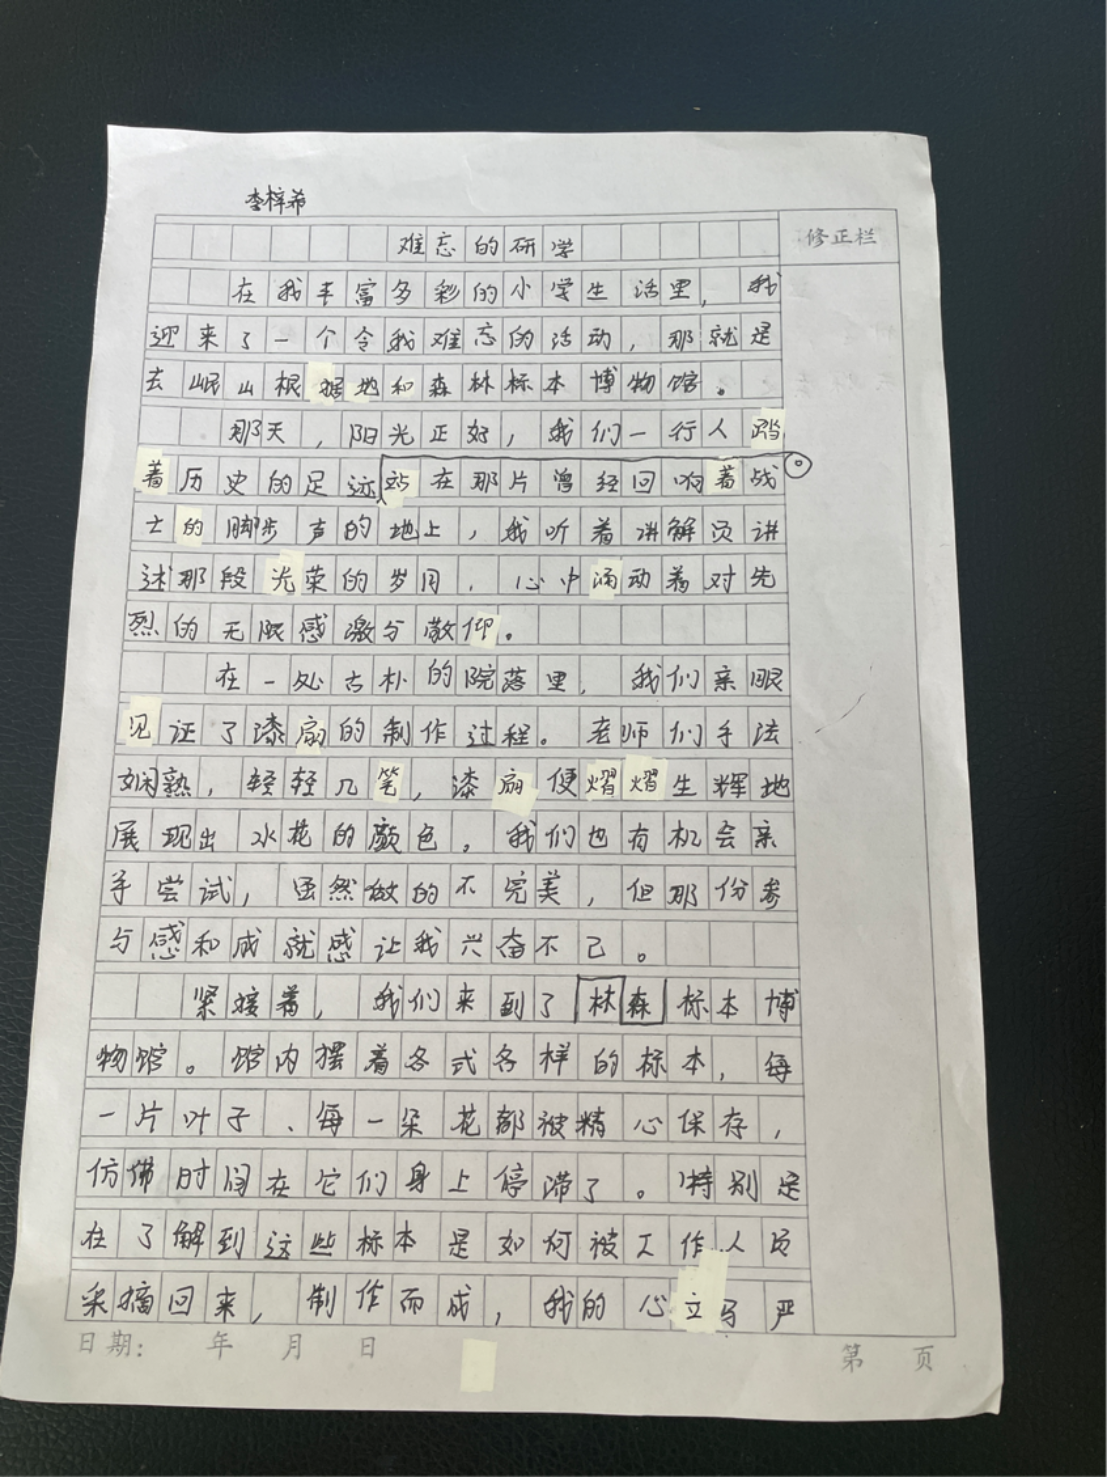 李梓希
难忘的研学
修正栏
在我丰富多彩的小学生活里，我
迎来了一个令我难忘的活动，那就是
去岷山根据地和森林标本博物馆。
那天，阳光正好，我们一行人踏
着历史的足迹站在那片曾经回响着战
士的脚步声的地上，我听着讲解员讲
述那段光荣的岁月，心中涌动着对先
烈的无限感激与敬仰。
在一处古朴的院落里，我们亲眼
见证了漆扇的制作过程。老师们手法
娴熟，轻轻几笔，漆扇便熠熠生辉地
展现出水花的颜色。我们也有机会亲
手尝试，虽然做的不完美，但那份参
与感和成就感让我兴奋不已。
紧接着，我们来到了林森标本博
物馆。馆内摆着各式各样的标本，每
一片叶子、每一朵花都被精心保存，
仿佛时间在它们身上停滞了。特别是
在了解到这些标本是如何被工作人员
采摘回来，制作而成，我的心立马严
日期： 年 月 日
第 页